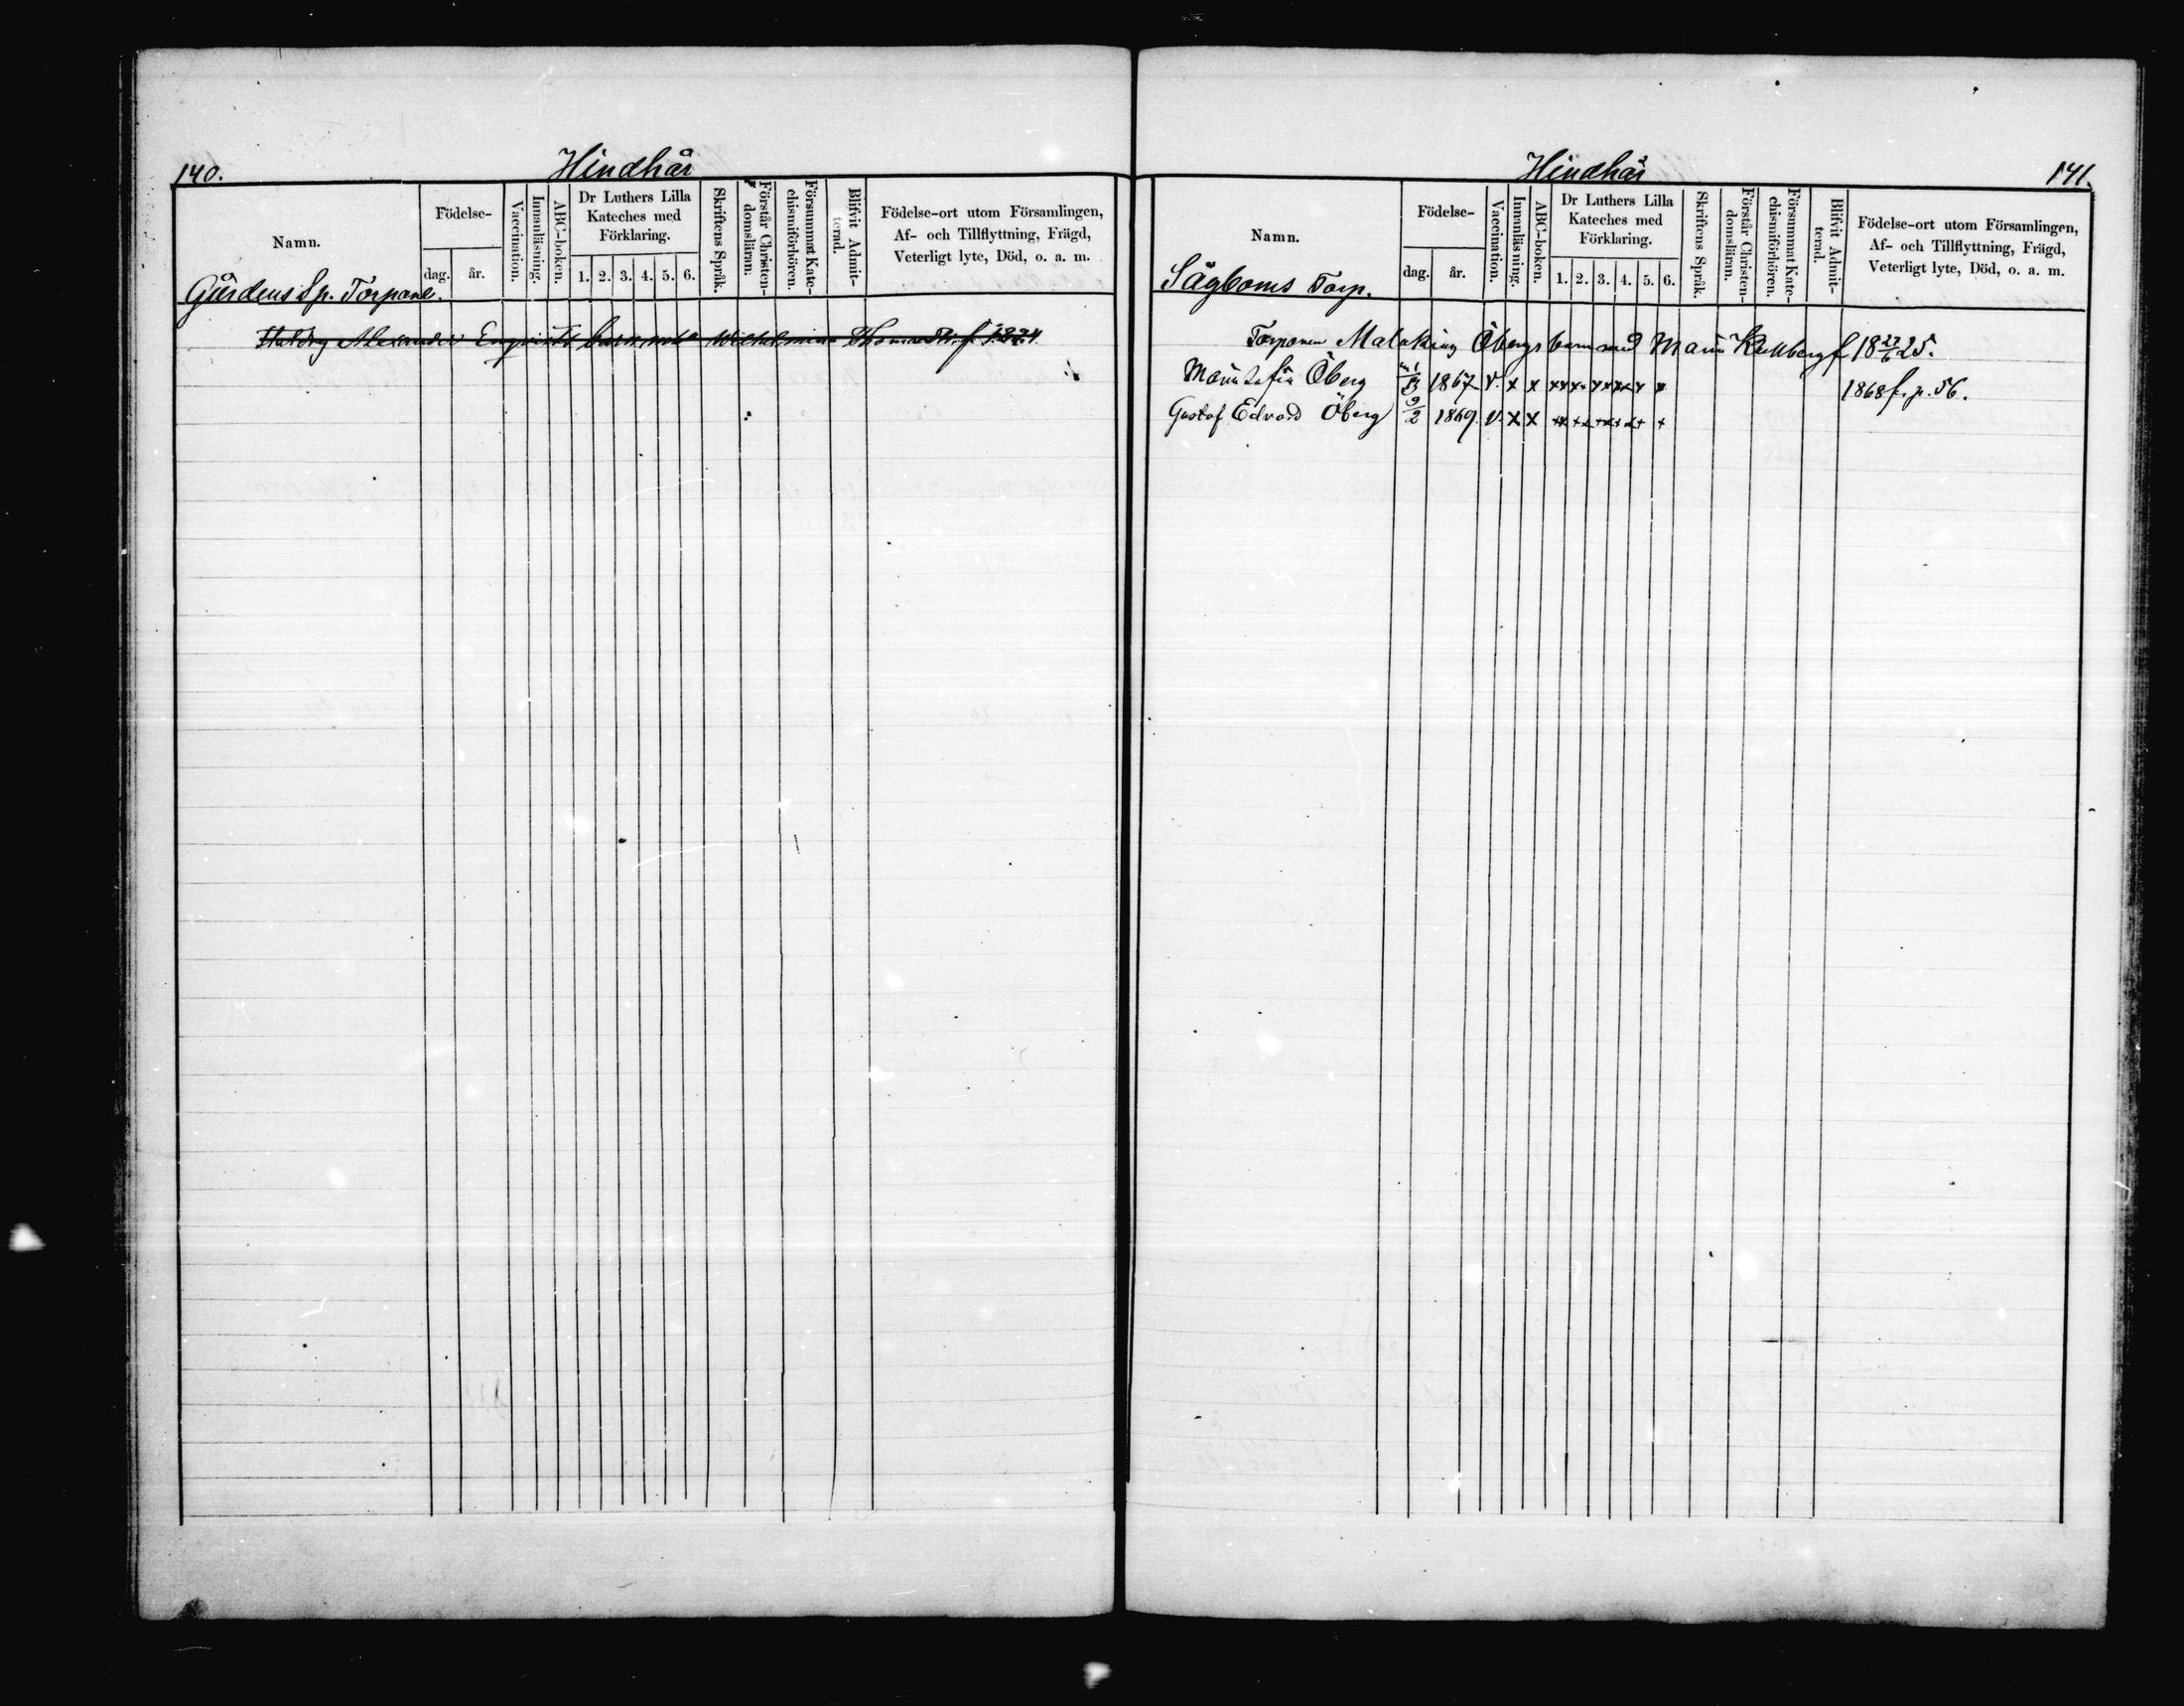 140.
Hindhår
Namn.
Födelse-
dag. år.
Vaccination.
Innanläsning.
ABC-boken.
Dr Luthers Lilla
Kateches med
Förklaring.
1. 2. 3. 4. 5. 6.
Skriftens Språk.
Förstår Christen-
domsläran.
Försummat Kate-
chismiförhören.
Blifvit Admit-
terad.
Födelse-ort utom Församlingen,
Af- och Tillflyttning, Frägd,
Veterligt lyte, Död, o. a. m.
Gårdens Sp. Torpare.
Alexander Enqvists barn med Wilhelmina f. 1824
Hindhår
141.
Namn.
Födelse-
dag. år.
Vaccination.
Innanläsning.
ABC-boken.
Dr Luthers Lilla
Kateches med
Förklaring.
1. 2. 3. 4. 5. 6.
Skriftens Språk.
Förstår Christen-
domsläran.
Försummat Kate-
chismiförhören.
Blifvit Admit-
terad.
Födelse-ort utom Församlingen,
Af- och Tillflyttning, Frägd,
Veterligt lyte, Död, o. a. m.
Sågboms Torp.
Torparen Malakias Öbergs barn med Maria Kullberg f 18 27/6 25.
Maria Sofia Öberg 1867 v. x x xx x x x x x x x 1868 f. p. 56.
Gustaf Edvard Öberg 9/2 1869. v. x x xx xx xx xx x+ +